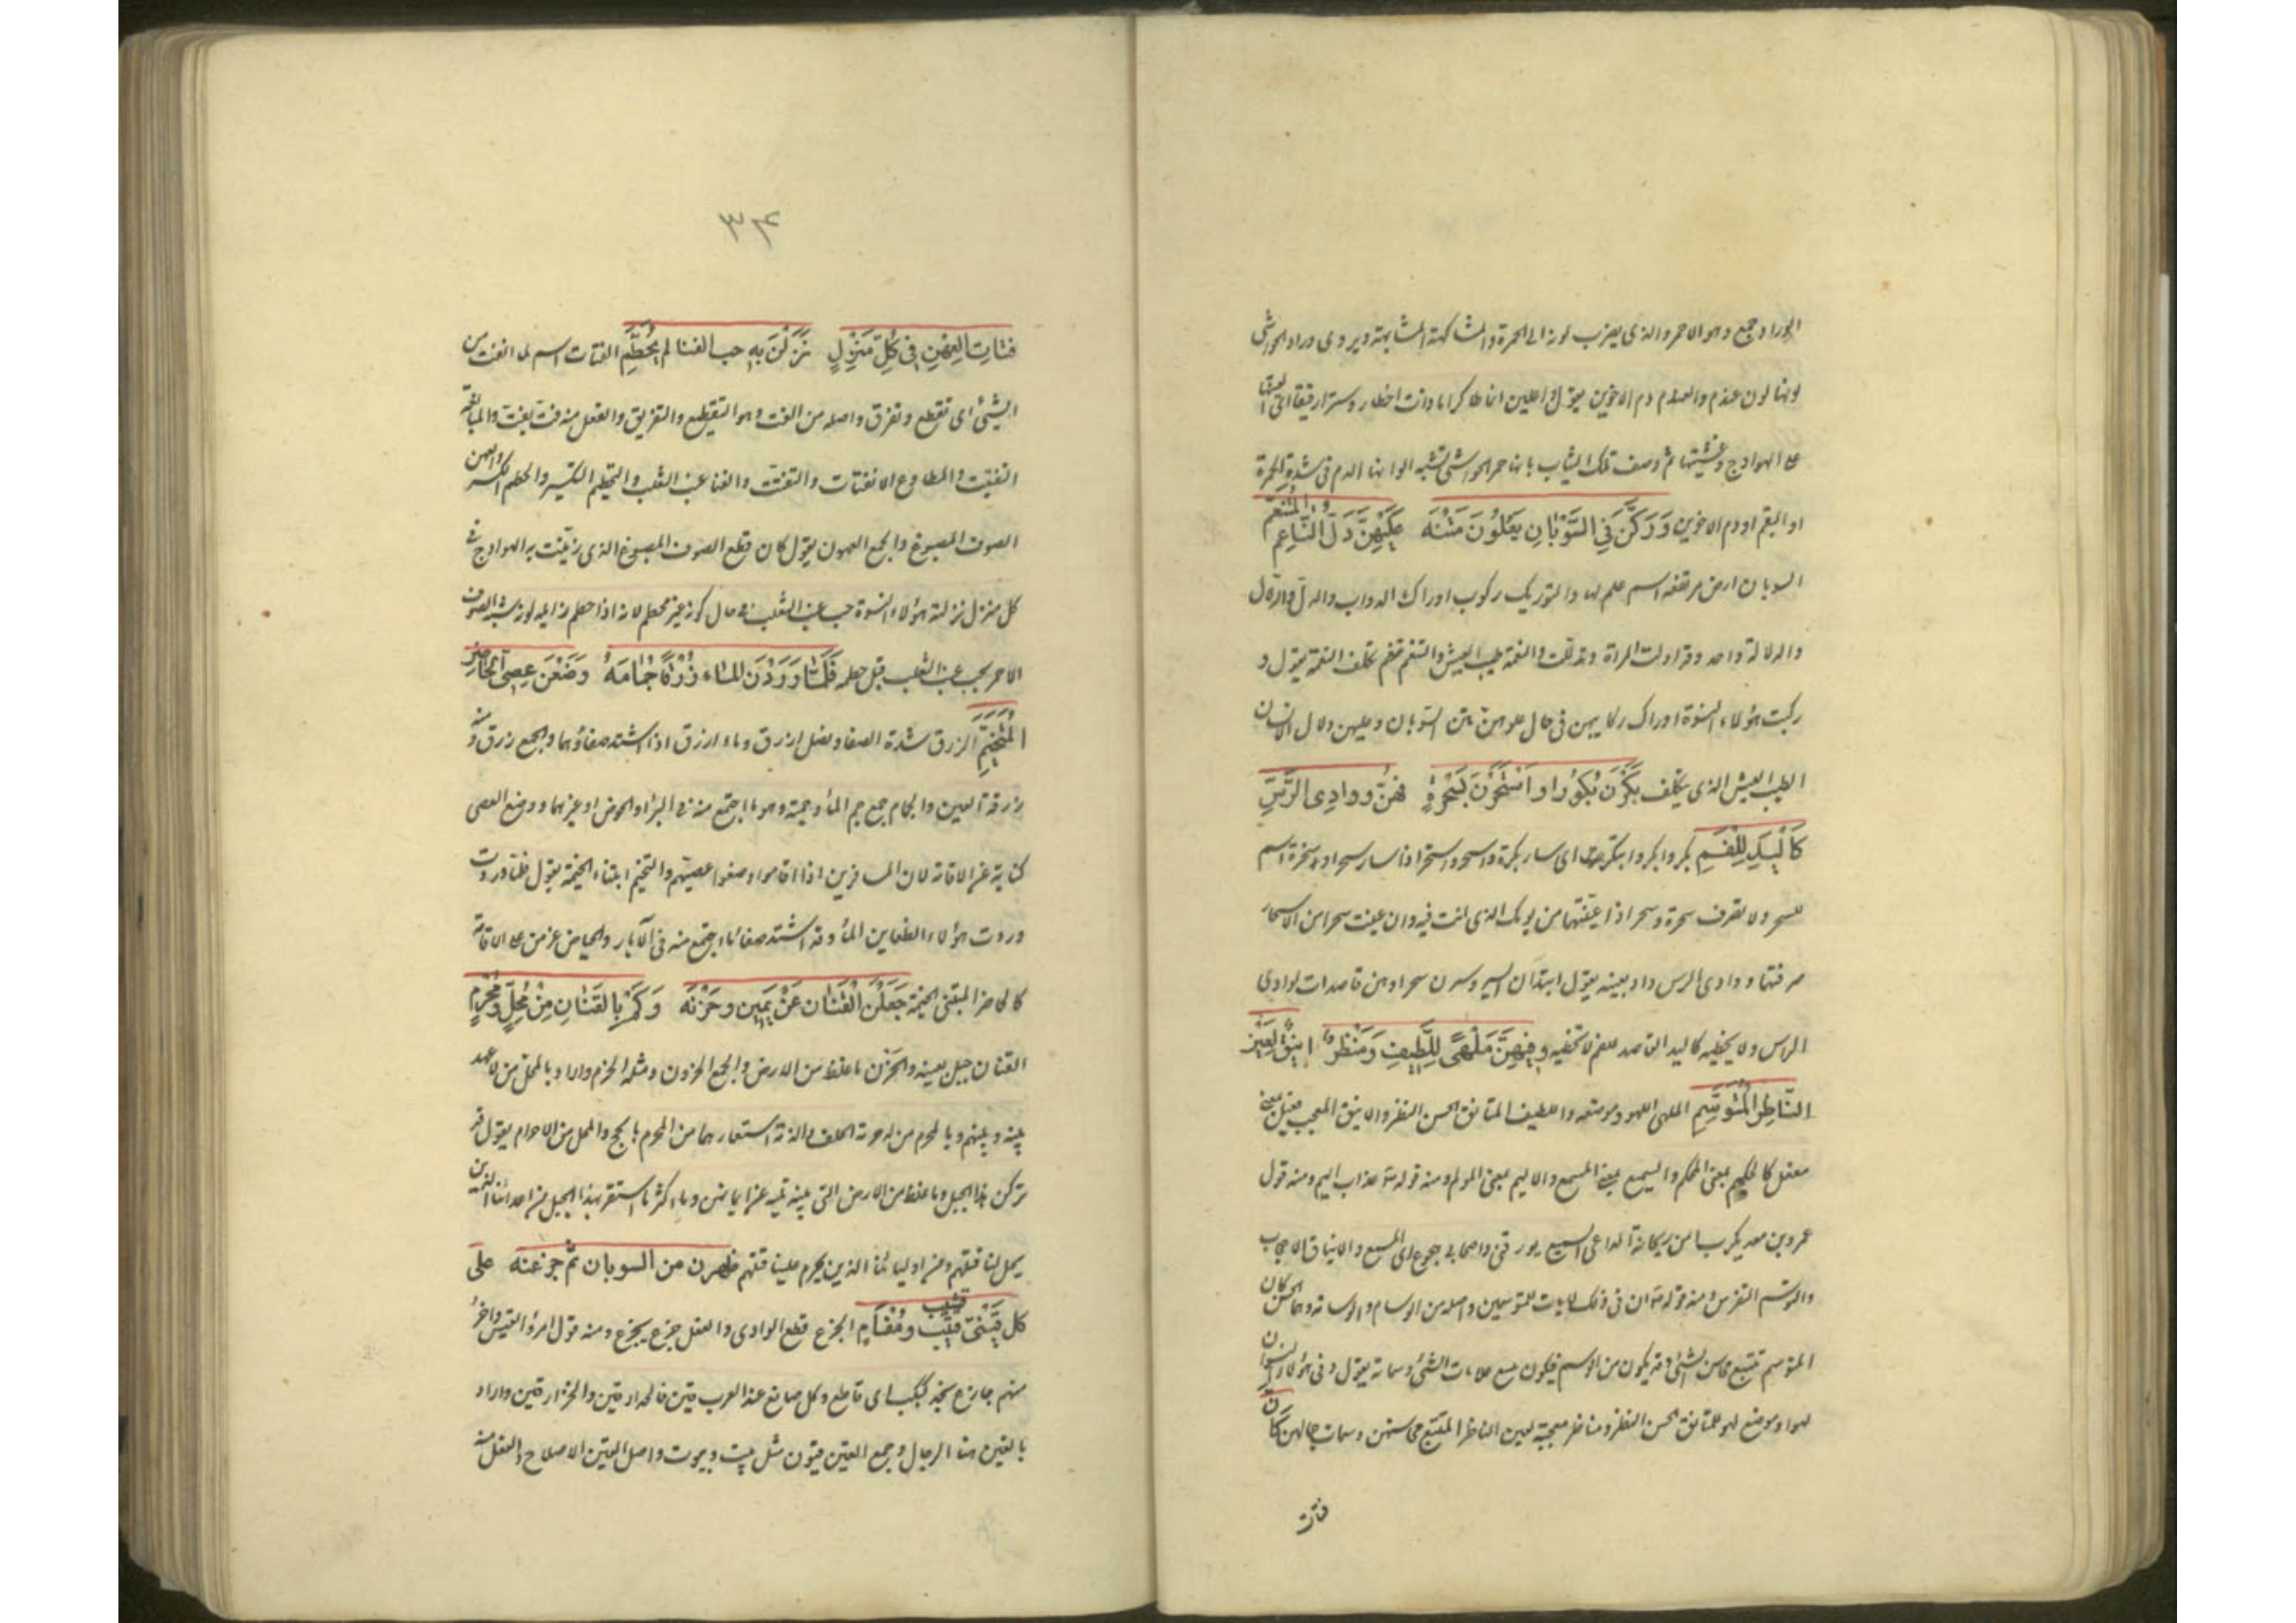 الوراد جمع وهو الاحمر والذى يضرب لونه الى الحمرة والمشاكهة المشابهة ويروى وراد الحواشى
لونها لون عندم والعندم دم الاخوين يقول واعلين انماطا كراما ذات اخطار وسترا رقيقا اى القينها
على الهوادج وغشينها ثم وصف تلك الثياب بانها حمر الحواشى تشبه الوانها الدم فى شدة الحمرة
او البقم او دم الاخوين وَوَرَّكْنَ فِى السُّوْبَانِ يَعْلُوْنَ مَتْنَهُ عَلَيْهِنَّ دَلُّ النَّاعِمِ الْمُتَنَعِّمِ
السوبان ارض مرتفعة اسم علم لها والتوريك ركوب اوراك الدواب والدل والدلال
والدلالة واحد وقد ادلت المراة وتدللت والنعمة طيب العيش والتنعم تكلف النعمة يقول و
ركبت هؤلاء النسوة اوراك ركابهن فى حال علوهن متن السوبان وعليهن دلال الانسان
الطيب العيش الذى يتكلف بَكَرْنَ بُكُوْرًا وَاسْتَحَرْنَ بِسُحْرَةٍ فَهُنَّ وَوَادِى الرَّسِّ
كَالْيَدِ لِلْفَمِ بكر وابكر وابتكر اى سار بكرة واسحر واستحر اذا سار سحرا وسحرة اسم
للسحر ولا تصرف سحرة وسحر اذا عينتهما من يومك الذى انت فيه وان عنيت سحرا من الاسحار
صرفتهما ووادى الرس واد بعينه يقول ابتدان السير وسرن سحرا وهن قاصدات لوادى
الرس ولا يخطيه كاليد القاصد للفم لا تخطيه وَفِيْهِنَّ مَلْهًى لِلَّطِيْفِ وَمَنْظَرٌ اَنِيْقٌ لِعَيْنِ
النَّاظِرِ الْمُتَوَسِّمِ الملهى اللهو وموضعه واللطيف المتانق الحسن النظر والانيق المعجب فعيل بمعنى
مفعل كالحكيم بمعنى المحكم والسميع بمعنى المسمع والاليم بمعنى المولم ومنه قوله تعالى عذاب اليم ومنه قول
عمرو بن معد يكرب امن ريحانة الداعى السميع يورقنى واصحابى هجوع اى المسمع والايناق الاعجاب
والتوسم التفرس ومنه قوله تعالى ان فى ذلك لايات للمتوسمين واصله من الوسام والوسامة وهما الحسن كان
المتوسم تتبع محاسن الشئ وقد يكون من الوسم فيكون تتبع علامات الشئ وسماته يقول وفى هؤلاء النسوان
لهو او موضع لهو للمتانق الحسن النظر ومناظر معجبة لعين الناظر المتتبع محاسنهن وسمات جمالهن كَاَنَّ
فتات
٣٤
فُتَاتَ الْعِهْنِ فِى كُلِّ مَنْزِلٍ نَزَلْنَ بِهِ حب الفنا لم يُحَطَّمِ الفتات اسم لما انفت من
الشئ اى تقطع وتفرق واصله من الفت وهو التقطيع والتفريق والفعل منه فت يفت والمبالغة
التفتيت والمطاوع الانفتات والتفتت والفنا عنب الثعلب والتحطيم التكسير والحطم الكسر والعهن
الصوف المصبوغ والجمع العهون يقول كان قطع الصوف المصبوغ الذى زينت به الهوادج فى
كل منزل نزلته هؤلاء النسوة حب عنب الثعلب فى حال كونه غير محطم لانه اذا حطم زايله لونه شبه الصوف
الاحمر بحب عنب الثعلب قبل حطمه فَلَمَّا وَرَدْنَ الْمَاءَ زُرْقًا جِمَامُهُ وَضَعْنَ عِصِىَّ الْحَاضِرِ
الْمُتَخَيِّمِ الزرق شدة الصفا ونصل ازرق وماء ازرق اذا اشتد صفاؤهما والجمع زرق ومنه
زرقة العين والجمام جمع جم الماء وجمته وهو ما اجتمع منه فى البئر او الحوض او غيرهما ووضع العصى
كناية عن الاقامة لان المسافرين اذا اقاموا وضعوا عصيهم والتخيم ابتناء الخيمة يقول فلما وردت
وردت هؤلاء الظعاين الماء وقد اشتد صفاء ما اجتمع منه فى الآبار والحياض عزمن على الاقامة
كالحاضر المبتنى الخيمة جَعَلْنَ الْقَنَانَ عَنْ يَمِيْنٍ وَحَزْنَهُ وَكَمْ بِالْقَنَانِ مِنْ مُحِلٍّ وَمُحْرِمِ
القنان جبل بعينه والحزن ما غلظ من الارض والجمع الحزون ومثله الحزم واراد بالمحل من لا عهد
بينه وبينهم وبالمحرم من له حرمة الحلف والذمة استعارهما من المحرم بالحج والمحل من الاحرام يقول قد
تركن هذا الجبل وما غلظ من الارض التى بينه تليه عن ايمانهن وما اكثر ما استقر بهذا الجبل من اعدائنا الذين
يحل لنا قتلهم ومن اوليائنا الذين يحرم علينا قتلهم ظهرن من السوبان ثم جزعنه على
كل قَيْنِىٍّ قَشِيْبٍ وَمُفْأَمِ الجزع قطع الوادى والفعل جزع يجزع ومنه قول امرؤ القيس واخر
منهم جازع نجد كبكب اى قاطع وكل صانع عند العرب قين فالحداد قين والخزار قين واراد
بالقين هنا الرحال وجمع القين قيون مثل بيت وبيوت واصل القين الاصلاح والفعل منه